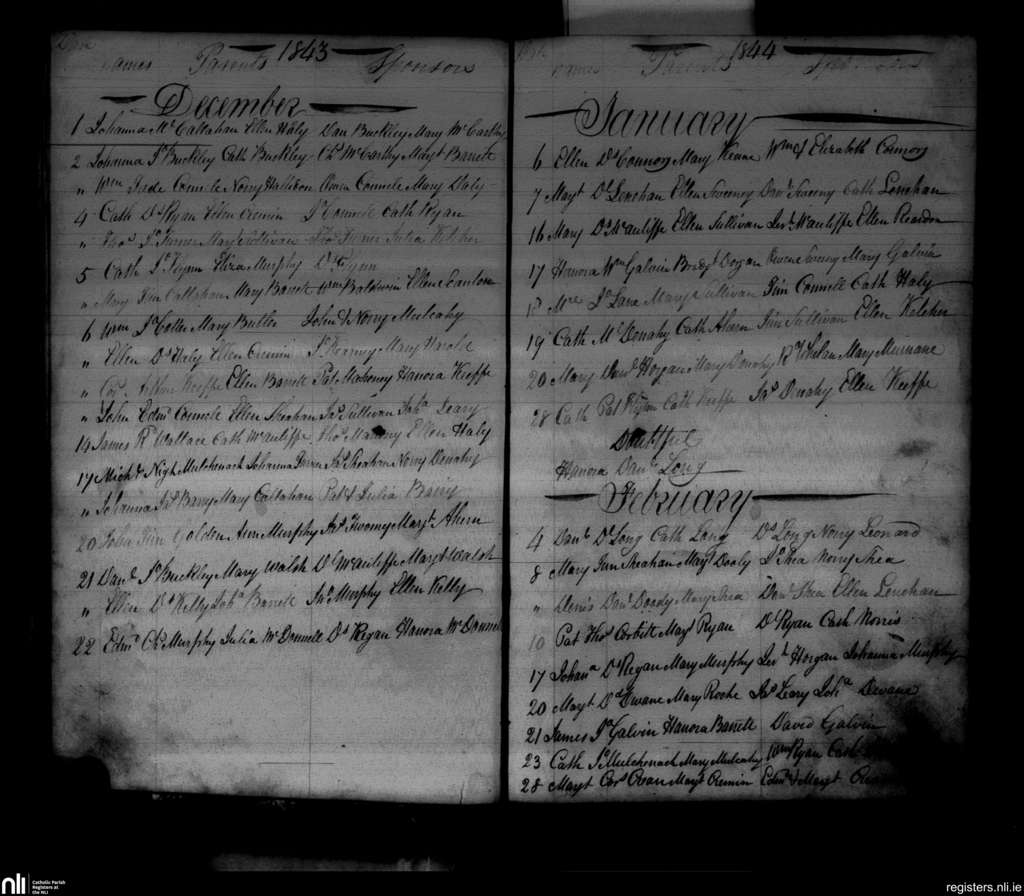 Date 1843
Names Parents Sponsors
December
1 Johanna Mc Callahan Ellen Haly Dan Buckley Mary McCarthy
2 Johanna Js Buckley Cath Buckley Chs McCarthy Mayt Barrett
" Wm Connele Norry Hallisen Owen Connele Mary Daly
4 Cath Ds Ryan Ellen Cremin Js Connele Cath Ryan
" Thos Js Turner Mary Sullivan Thos Turner Julia Kelcher
5 Cath Js Flynn Eliza Murphy Ds Flynn
" Mary Jim Callahan Mary Barrett Wm Baldwin Ellen Scanlon
6 Wm Js Cotter Mary Butler John & Norry Mulcahy
" Ellen Ds Haly Ellen Cremin Js Mary
" Keeffe Ellen Barrett Pat Mahoney Hanora Keeffe
" John Edmd Connele Ellen Sheehan Jas Sullivan Joha Leary
14 James Rd Wallace Cath McAuliffe Thos Ellen Haly
17 Michl Nigh Mulchenock Johanna Jas Sheehan Norry Donahy
" Johanna Jas Barry Mary Callahan Pat & Julia Barry
20 John Jim Golden Ann Murphy Jas Twomy Margt Ahern
21 Danl Js Buckley Mary Walsh Ds McAuliffe Margt Walsh
" Ellen Ds Kelly Joha Barrett Jas Murphy Ellen Kelly
22 Edmd Chs Murphy Julia McDonnell Ds Regan Hanora McDonnell
Date 1844
Names Parents Sponsors
January
6 Ellen Ds Connors Mary Keane Wm & Elizabeth Connors
7 Mayt Ds Lenehan Ellen Sweeny Danl Sweeny Cath Lenehan
16 Mary Ds McAuliffe Ellen Sullivan Jerh McAuliffe Ellen Reardon
17 Hanora Wm Galvin Bridgt Dogan Owen Sweeny Mary Galvin
Js Lane Mary Sullivan Jim Connell Cath Haly
19 Cath Ml Donahy Cath Ahern Jim Sullivan Ellen Kelcher
20 Mary Danl Horgan Mary Donahy Rd Whelan Mary Murnane
28 Cath Pat Flynn Cath Keeffe Jas Donahy Ellen Keeffe
Doubtful
Hanora Danl Long
February
4 Danl Ds Long Cath Long Ds Long Norry Leonard
8 Mary Jim Sheahan Mayt Dooly Js Shea Norry Shea
" Denis Danl Doody Mary Shea Danl Shea Ellen Lenehan
10 Pat Thos Corbett Mayt Ryan Ds Ryan Cath Norris
17 Johana Ds Regan Mary Murphy Jerh Horgan Johanna Murphy
20 Mayt Dd Dwane Mary Roche Jas Leary Joha Dwane
21 James Js Galvin Hanora Barrett David Galvin
23 Cath Js Mulchenock Mary Mulcahy Wm Ryan Cath
28 Mayt Cors Crean Mayt Cremin Edmd & Mayt
nli
Catholic Parish
Registers at
the NLI
registers.nli.ie